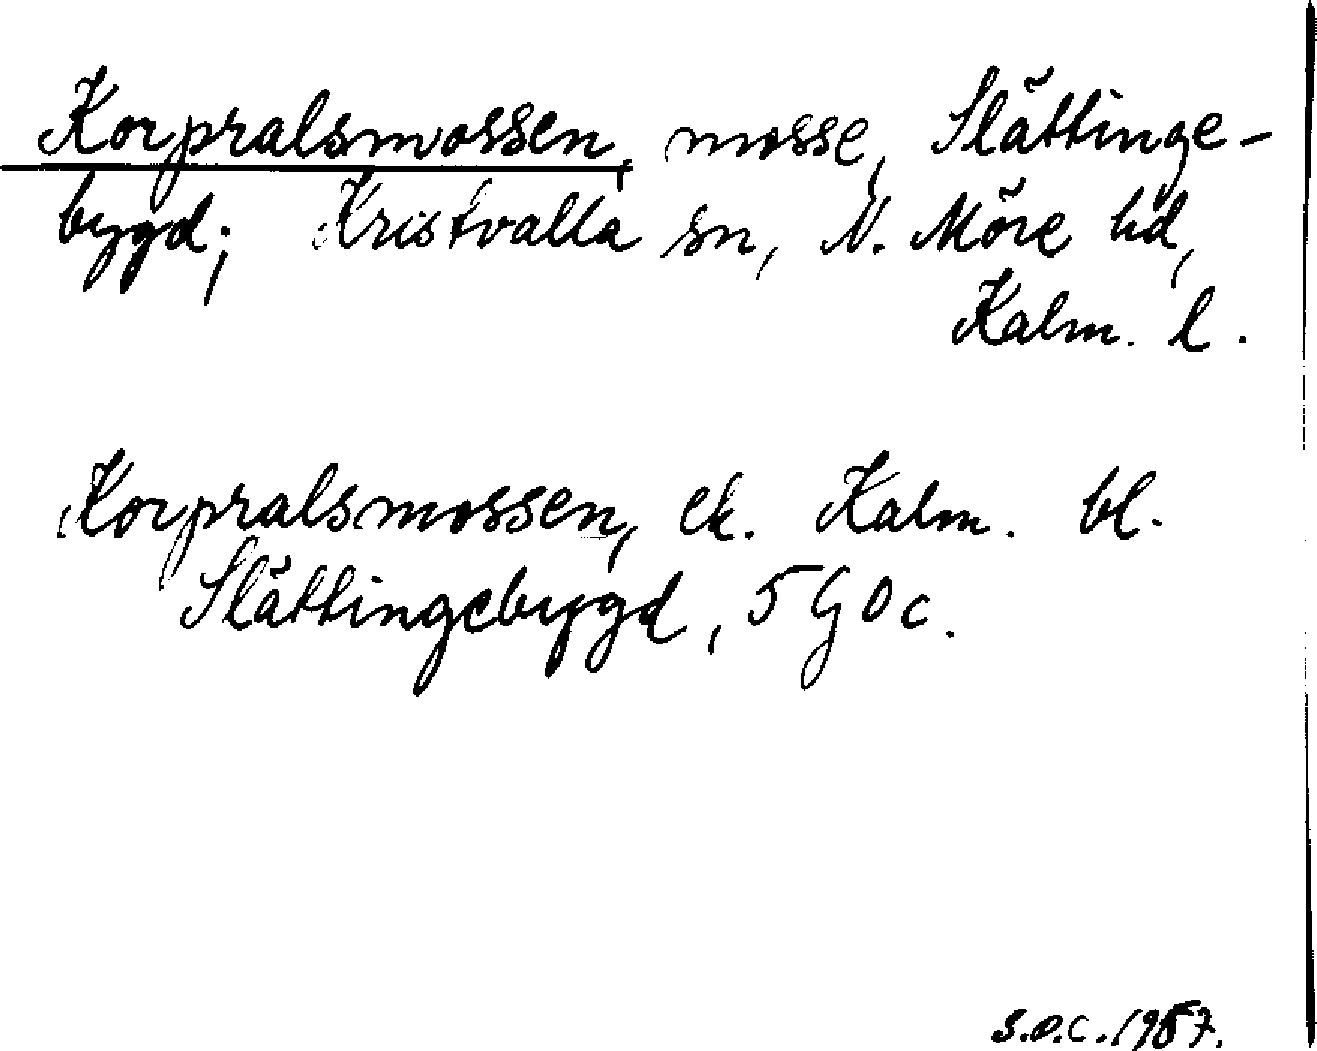 Korpralsmossen, mosse, Slättinge-
bygd; Kristvalla sn, N. Möre hd,
Kalm. l.
Korpralsmossen, ek. Kalm. bl.
Slättingebygd, 5 G 0 c.
S.O.C. 1957.